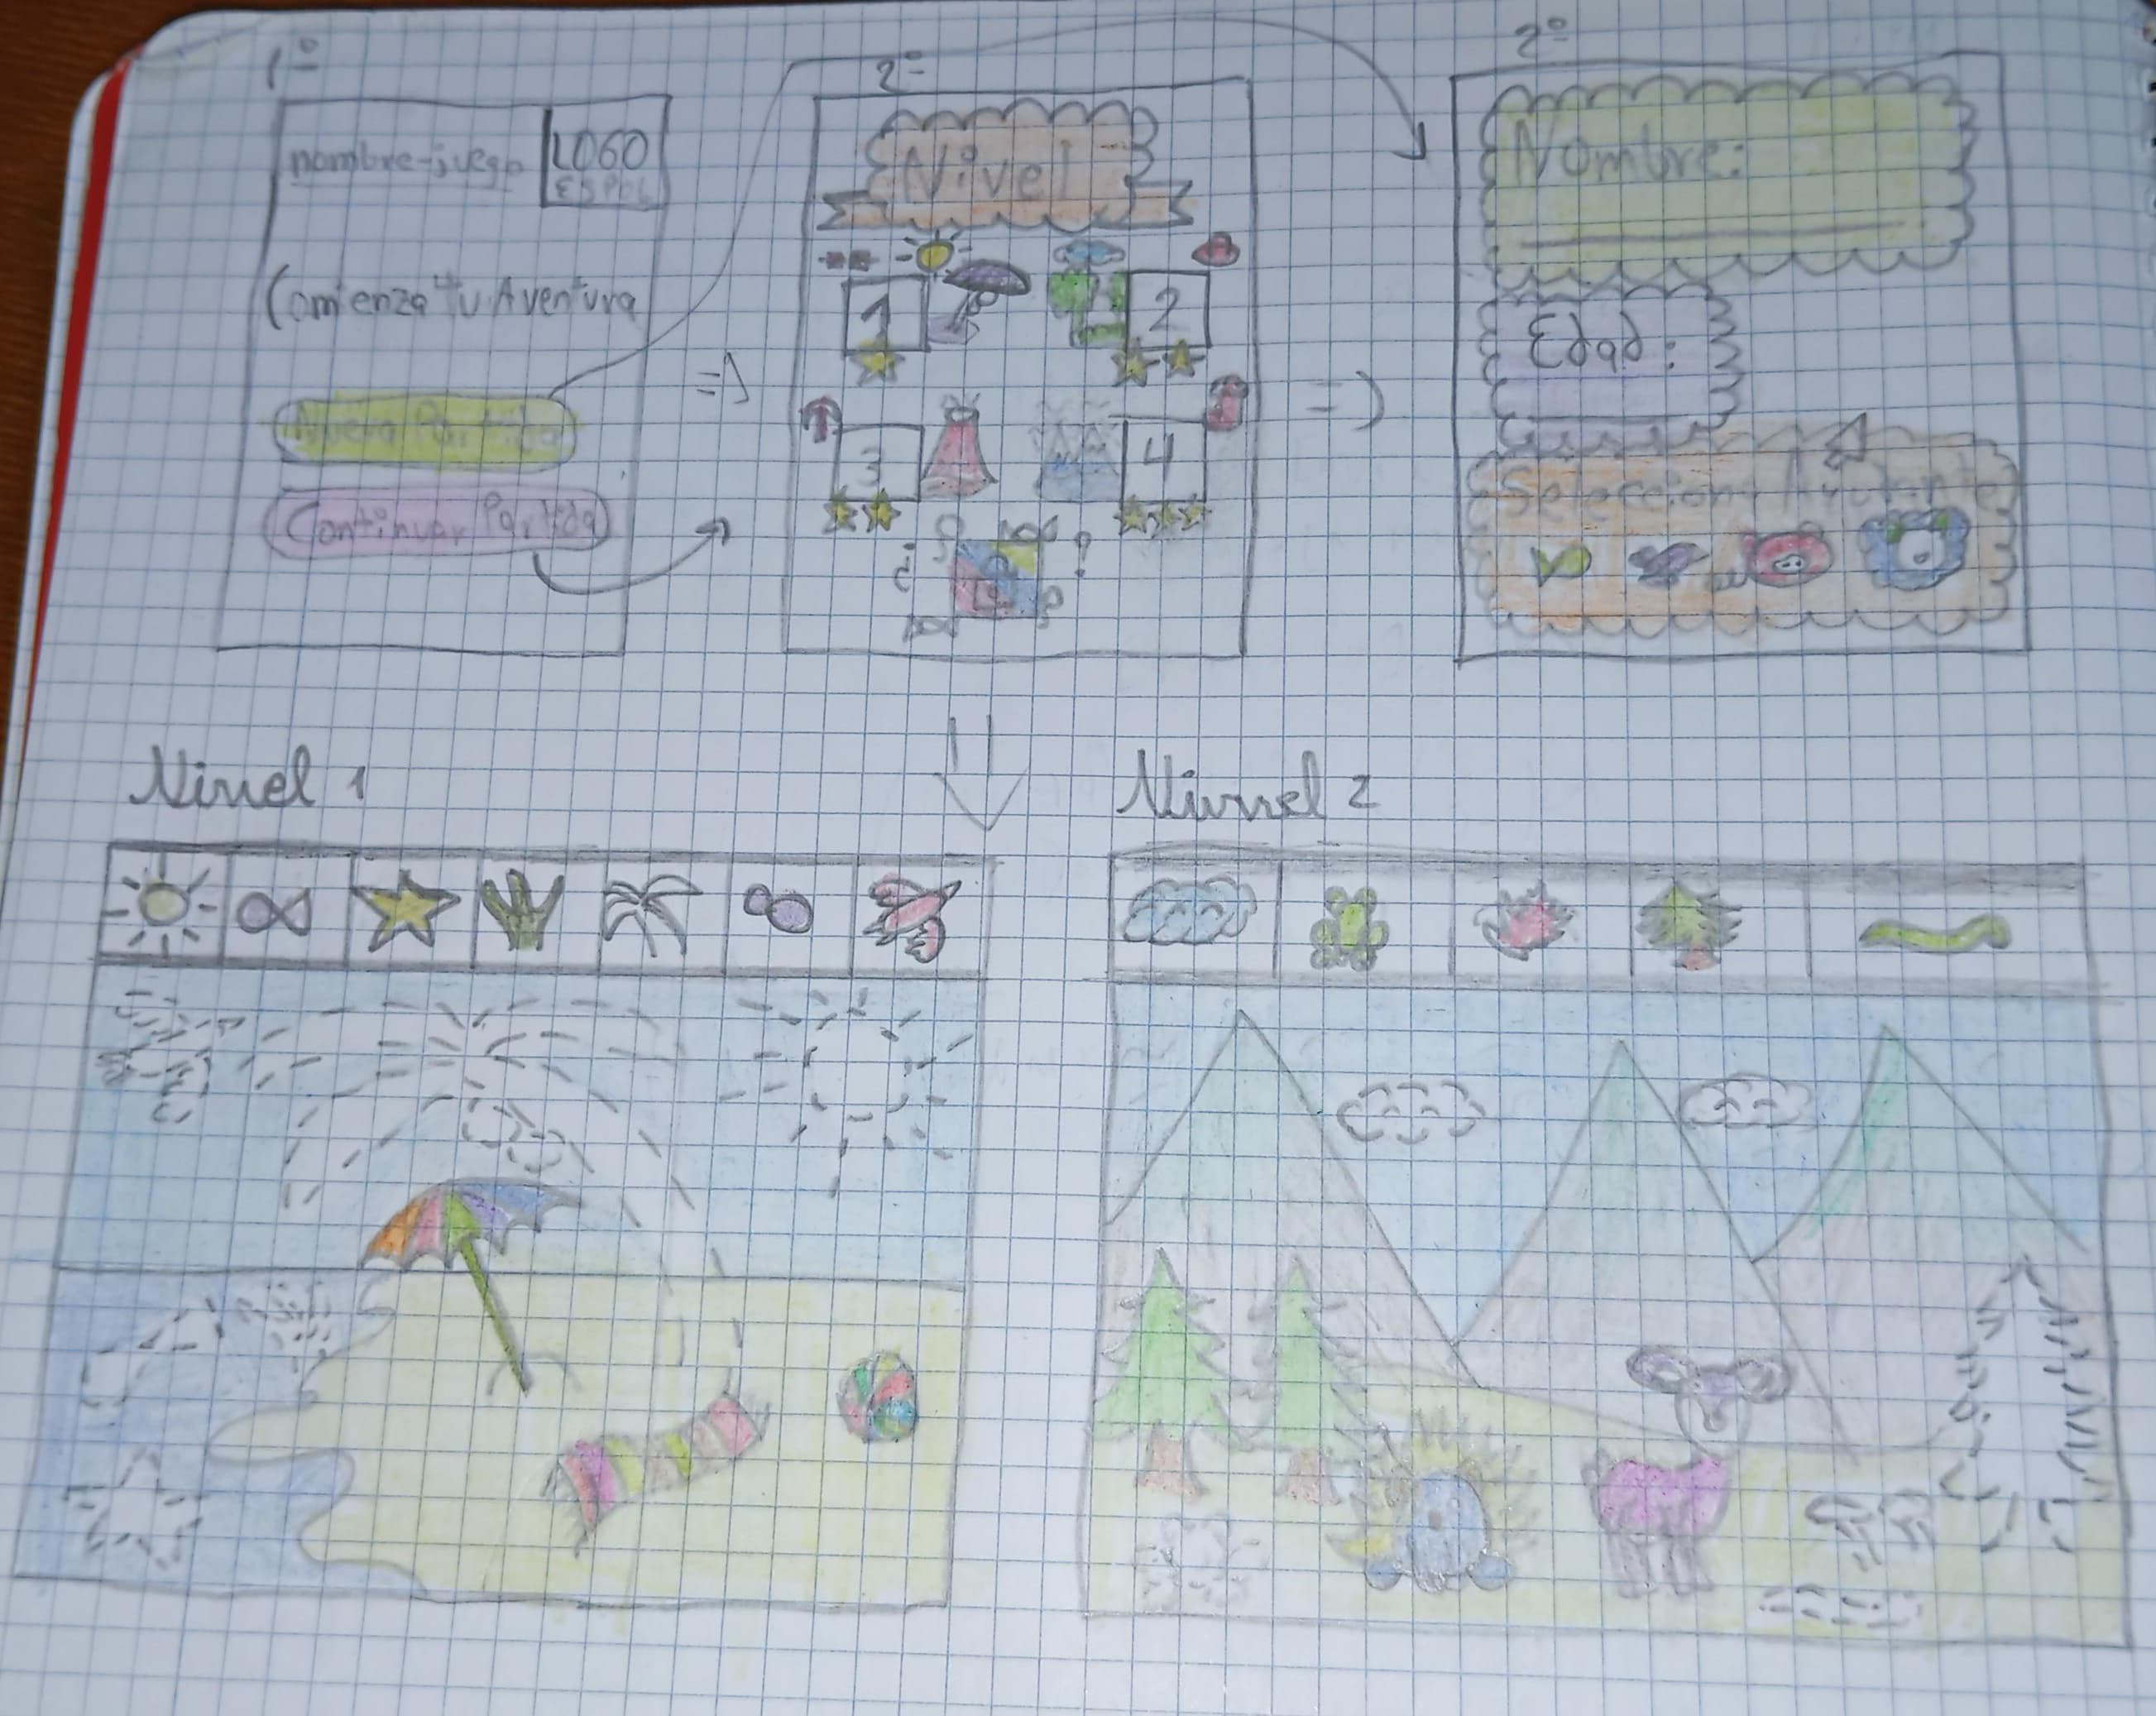 1º
nombre-juego
LOGO
ESPOL
Comienza tu Aventura
Nueva Partida
Continuar Partida
=>
2º
Nivel
1
2
3
4
¿ ?
=>
2º
Nombre:
Edad:
Selecciona Ayudante
Nivel 1
Nivel 2